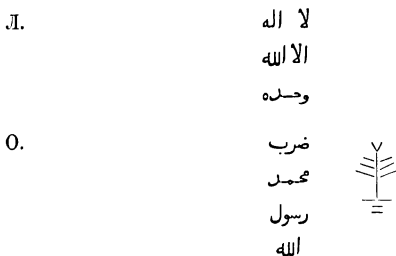 Л. لا اله
الا الله
وحده
О. ضرب
محمد
رسول
الله